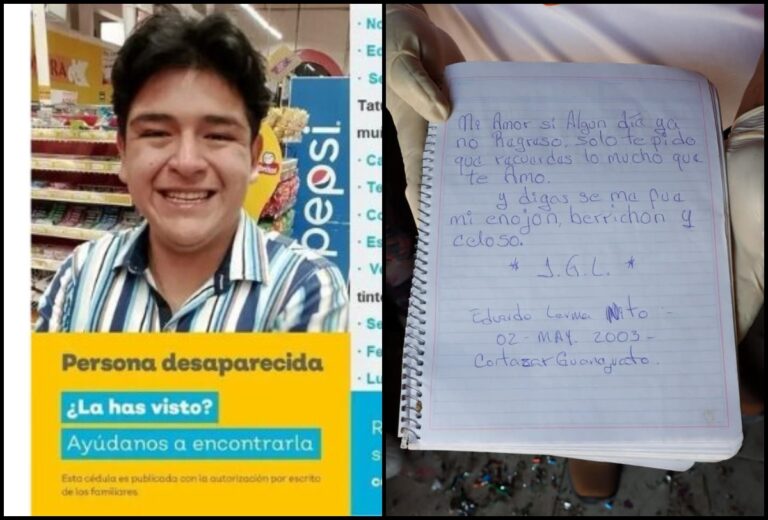 pepsi
· No
· Ed
· Se
Tatu
mu
· Ca
· Te
· Co
· Es
· Ve
tint
· Se
· Fe
· Lu
Persona desaparecida
¿La has visto?
Ayúdanos a encontrarla
Esta cédula es publicada con la autorización por escrito
de los familiares.
Mi Amor si Algun día ya
no Regreso, solo te pido
que recuerdes lo mucho que
te Amo.
y digas se me fue
mi enojon, berrichon y
celoso.
* J.G.L. *
Eduardo Lerma Nito
02 - MAY. 2003 -
Cortazar Guanajuato.